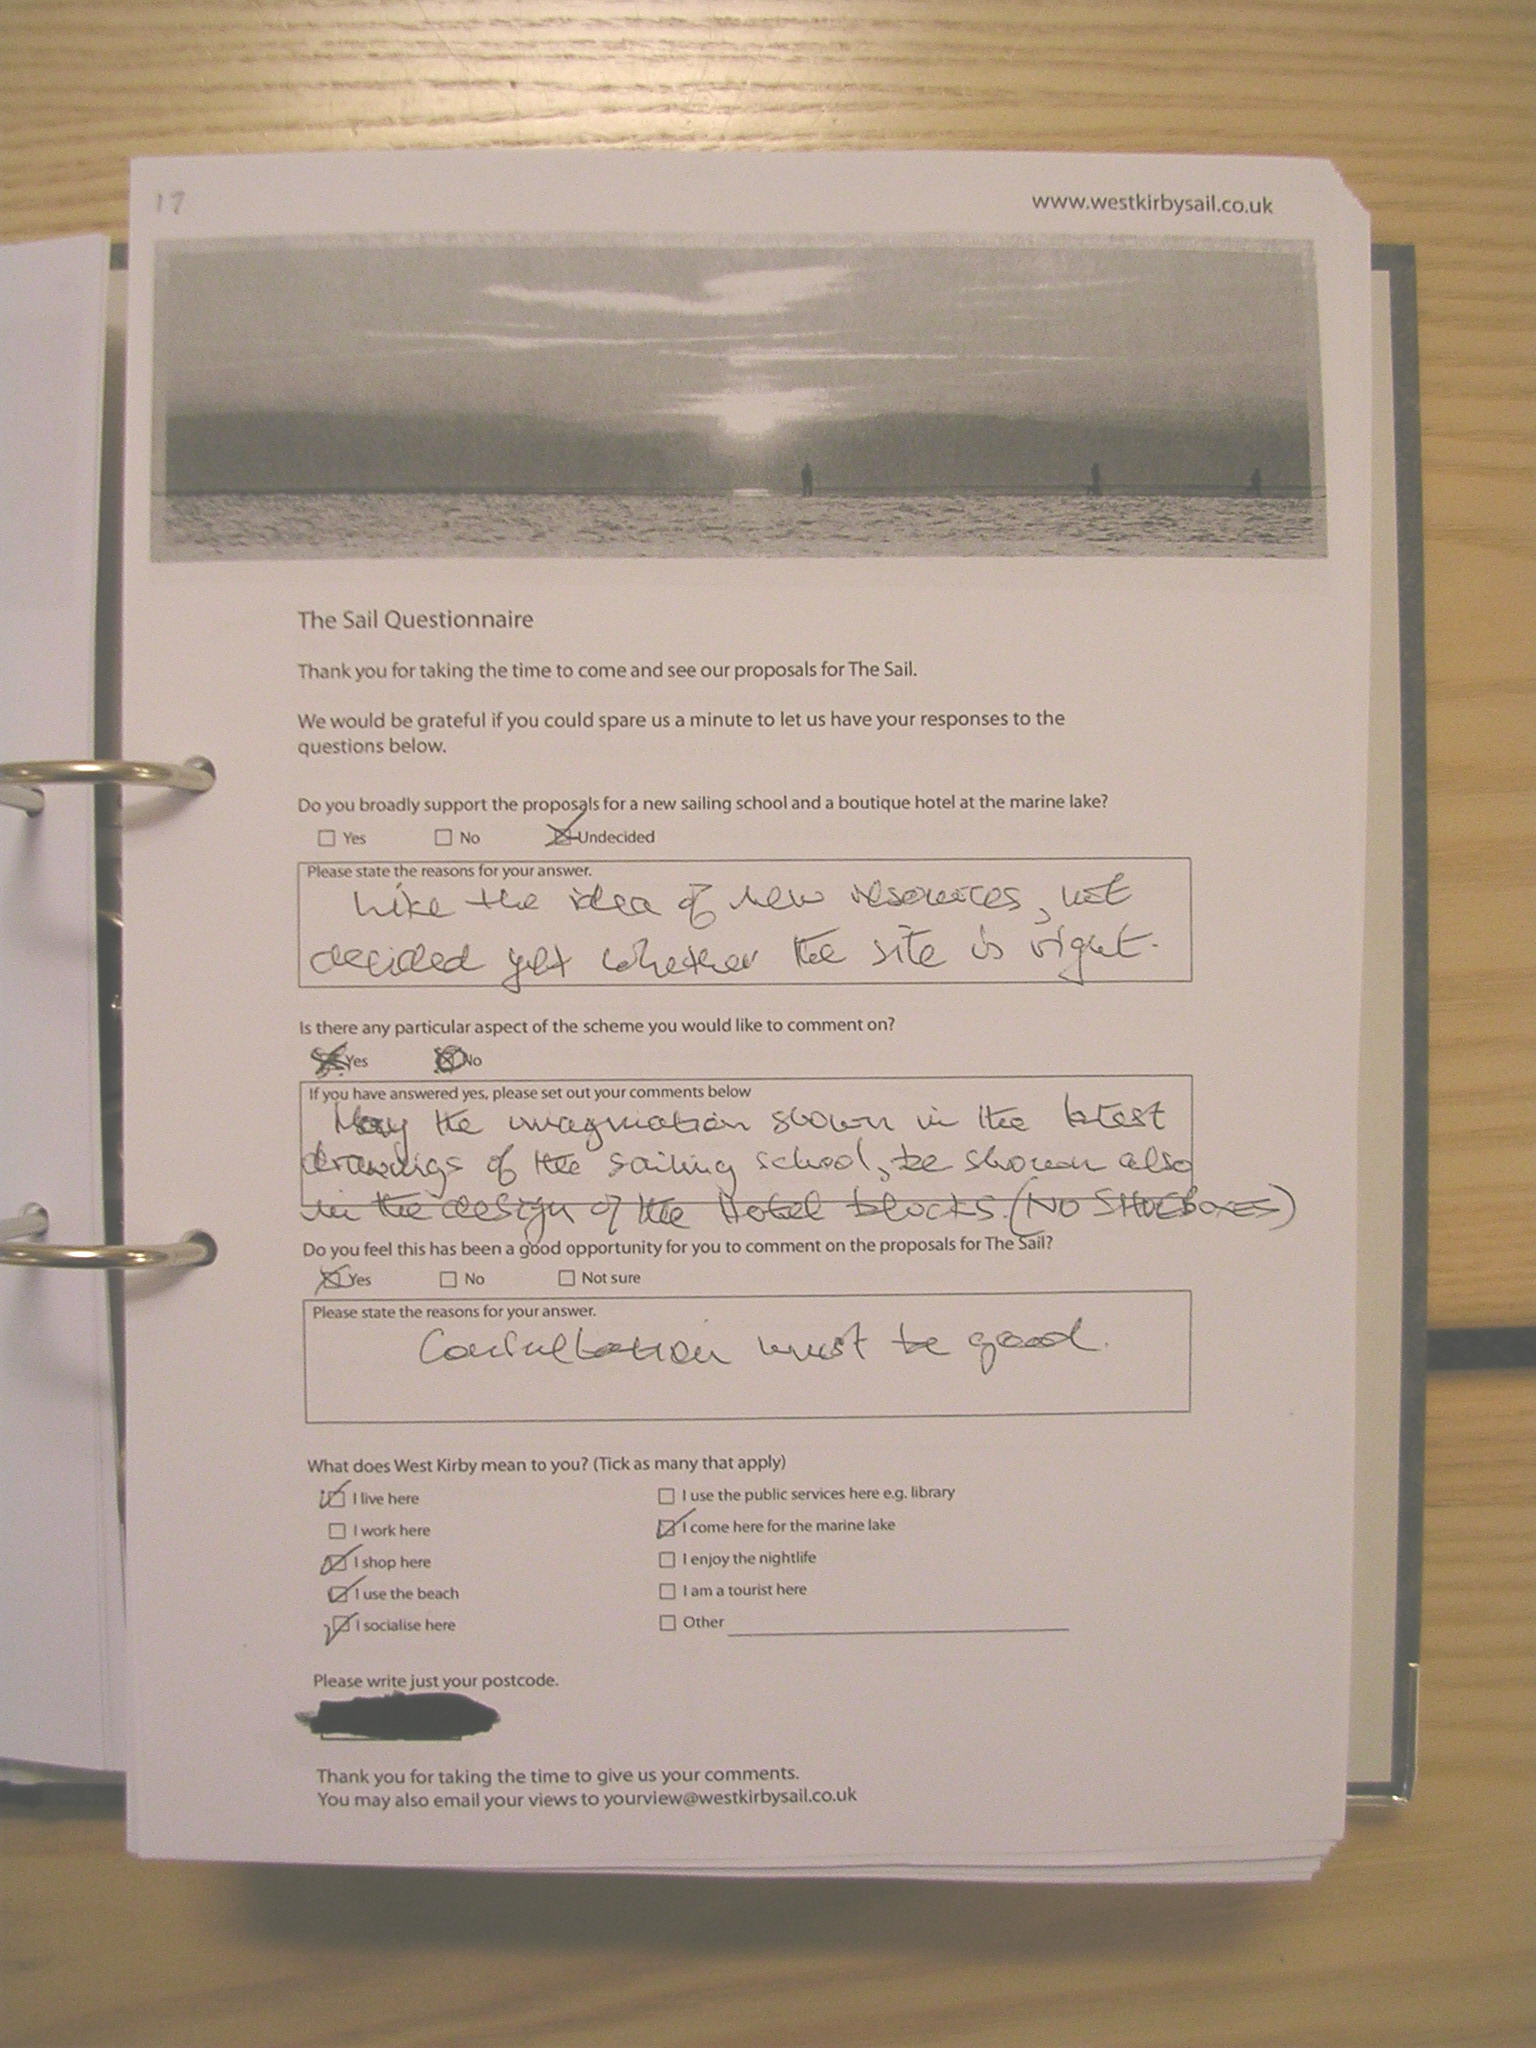 17
www.westkirbysail.co.uk
The Sail Questionnaire
Thank you for taking the time to come and see our proposals for The Sail.
We would be grateful if you could spare us a minute to let us have your responses to the
questions below.
Do you broadly support the proposals for a new sailing school and a boutique hotel at the marine lake?
Yes No Undecided
Please state the reasons for your answer.
Like the idea of new resources, not
decided yet whether the site is right.
Is there any particular aspect of the scheme you would like to comment on?
Yes No
If you have answered yes, please set out your comments below
May the imagination shown in the latest
drawings of the sailing school, be shown also
in the design of the Hotel blocks. (NO SHOEBOXES)
Do you feel this has been a good opportunity for you to comment on the proposals for The Sail?
Yes No Not sure
Please state the reasons for your answer.
Consultation must be good.
What does West Kirby mean to you? (Tick as many that apply)
I live here I use the public services here e.g. library
I work here I come here for the marine lake
I shop here I enjoy the nightlife
I use the beach I am a tourist here
I socialise here Other
Please write just your postcode.
Thank you for taking the time to give us your comments.
You may also email your views to yourview@westkirbysail.co.uk